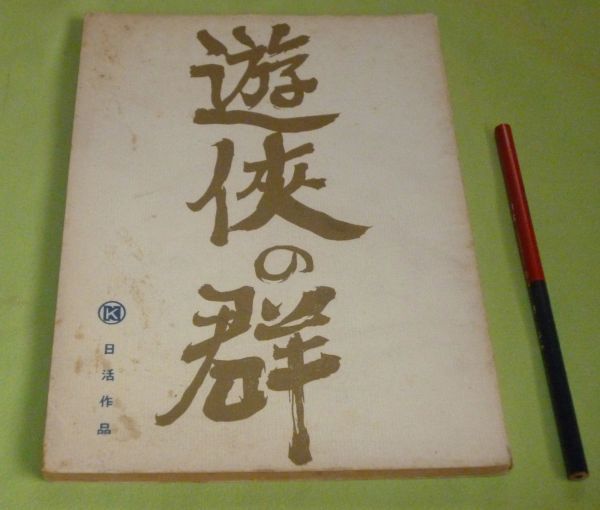 遊侠の群
K
日活作品